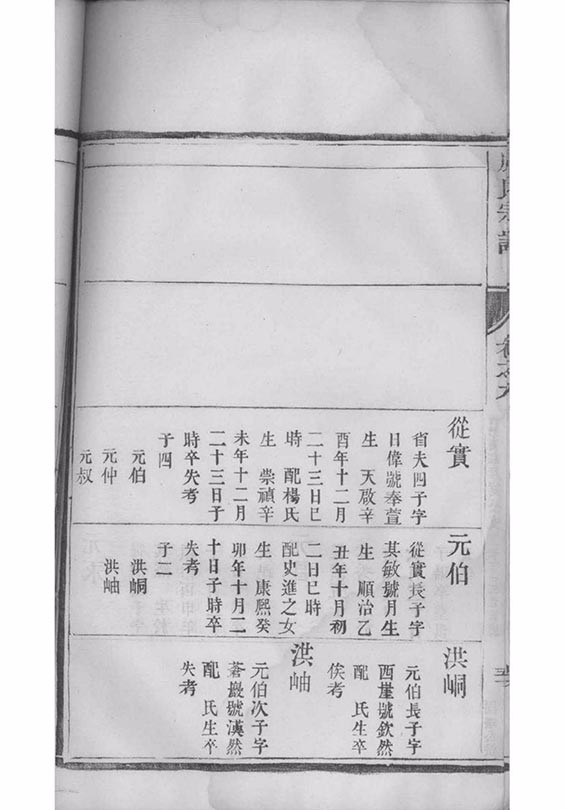 氏宗譜
卷之九
從實
省夫四子字
日偉號奉萱
生 天啟辛
酉年十二月
二十三日巳
時 配楊氏
生 崇禎辛
未年十二月
二十三日子
時卒失考
子四
元伯
元仲
元叔
元伯
從實長子字
其敏號月生
生 順治乙
丑年十月初
二日巳時
配史進之女
生 康熙癸
卯年十月二
十日子時卒
失考
子二
洪峒
洪岫
洪峒
元伯長子字
西崖號欽然
配 氏生卒
俟考
洪岫
元伯次子字
蒼巖號漢然
配 氏生卒
失考